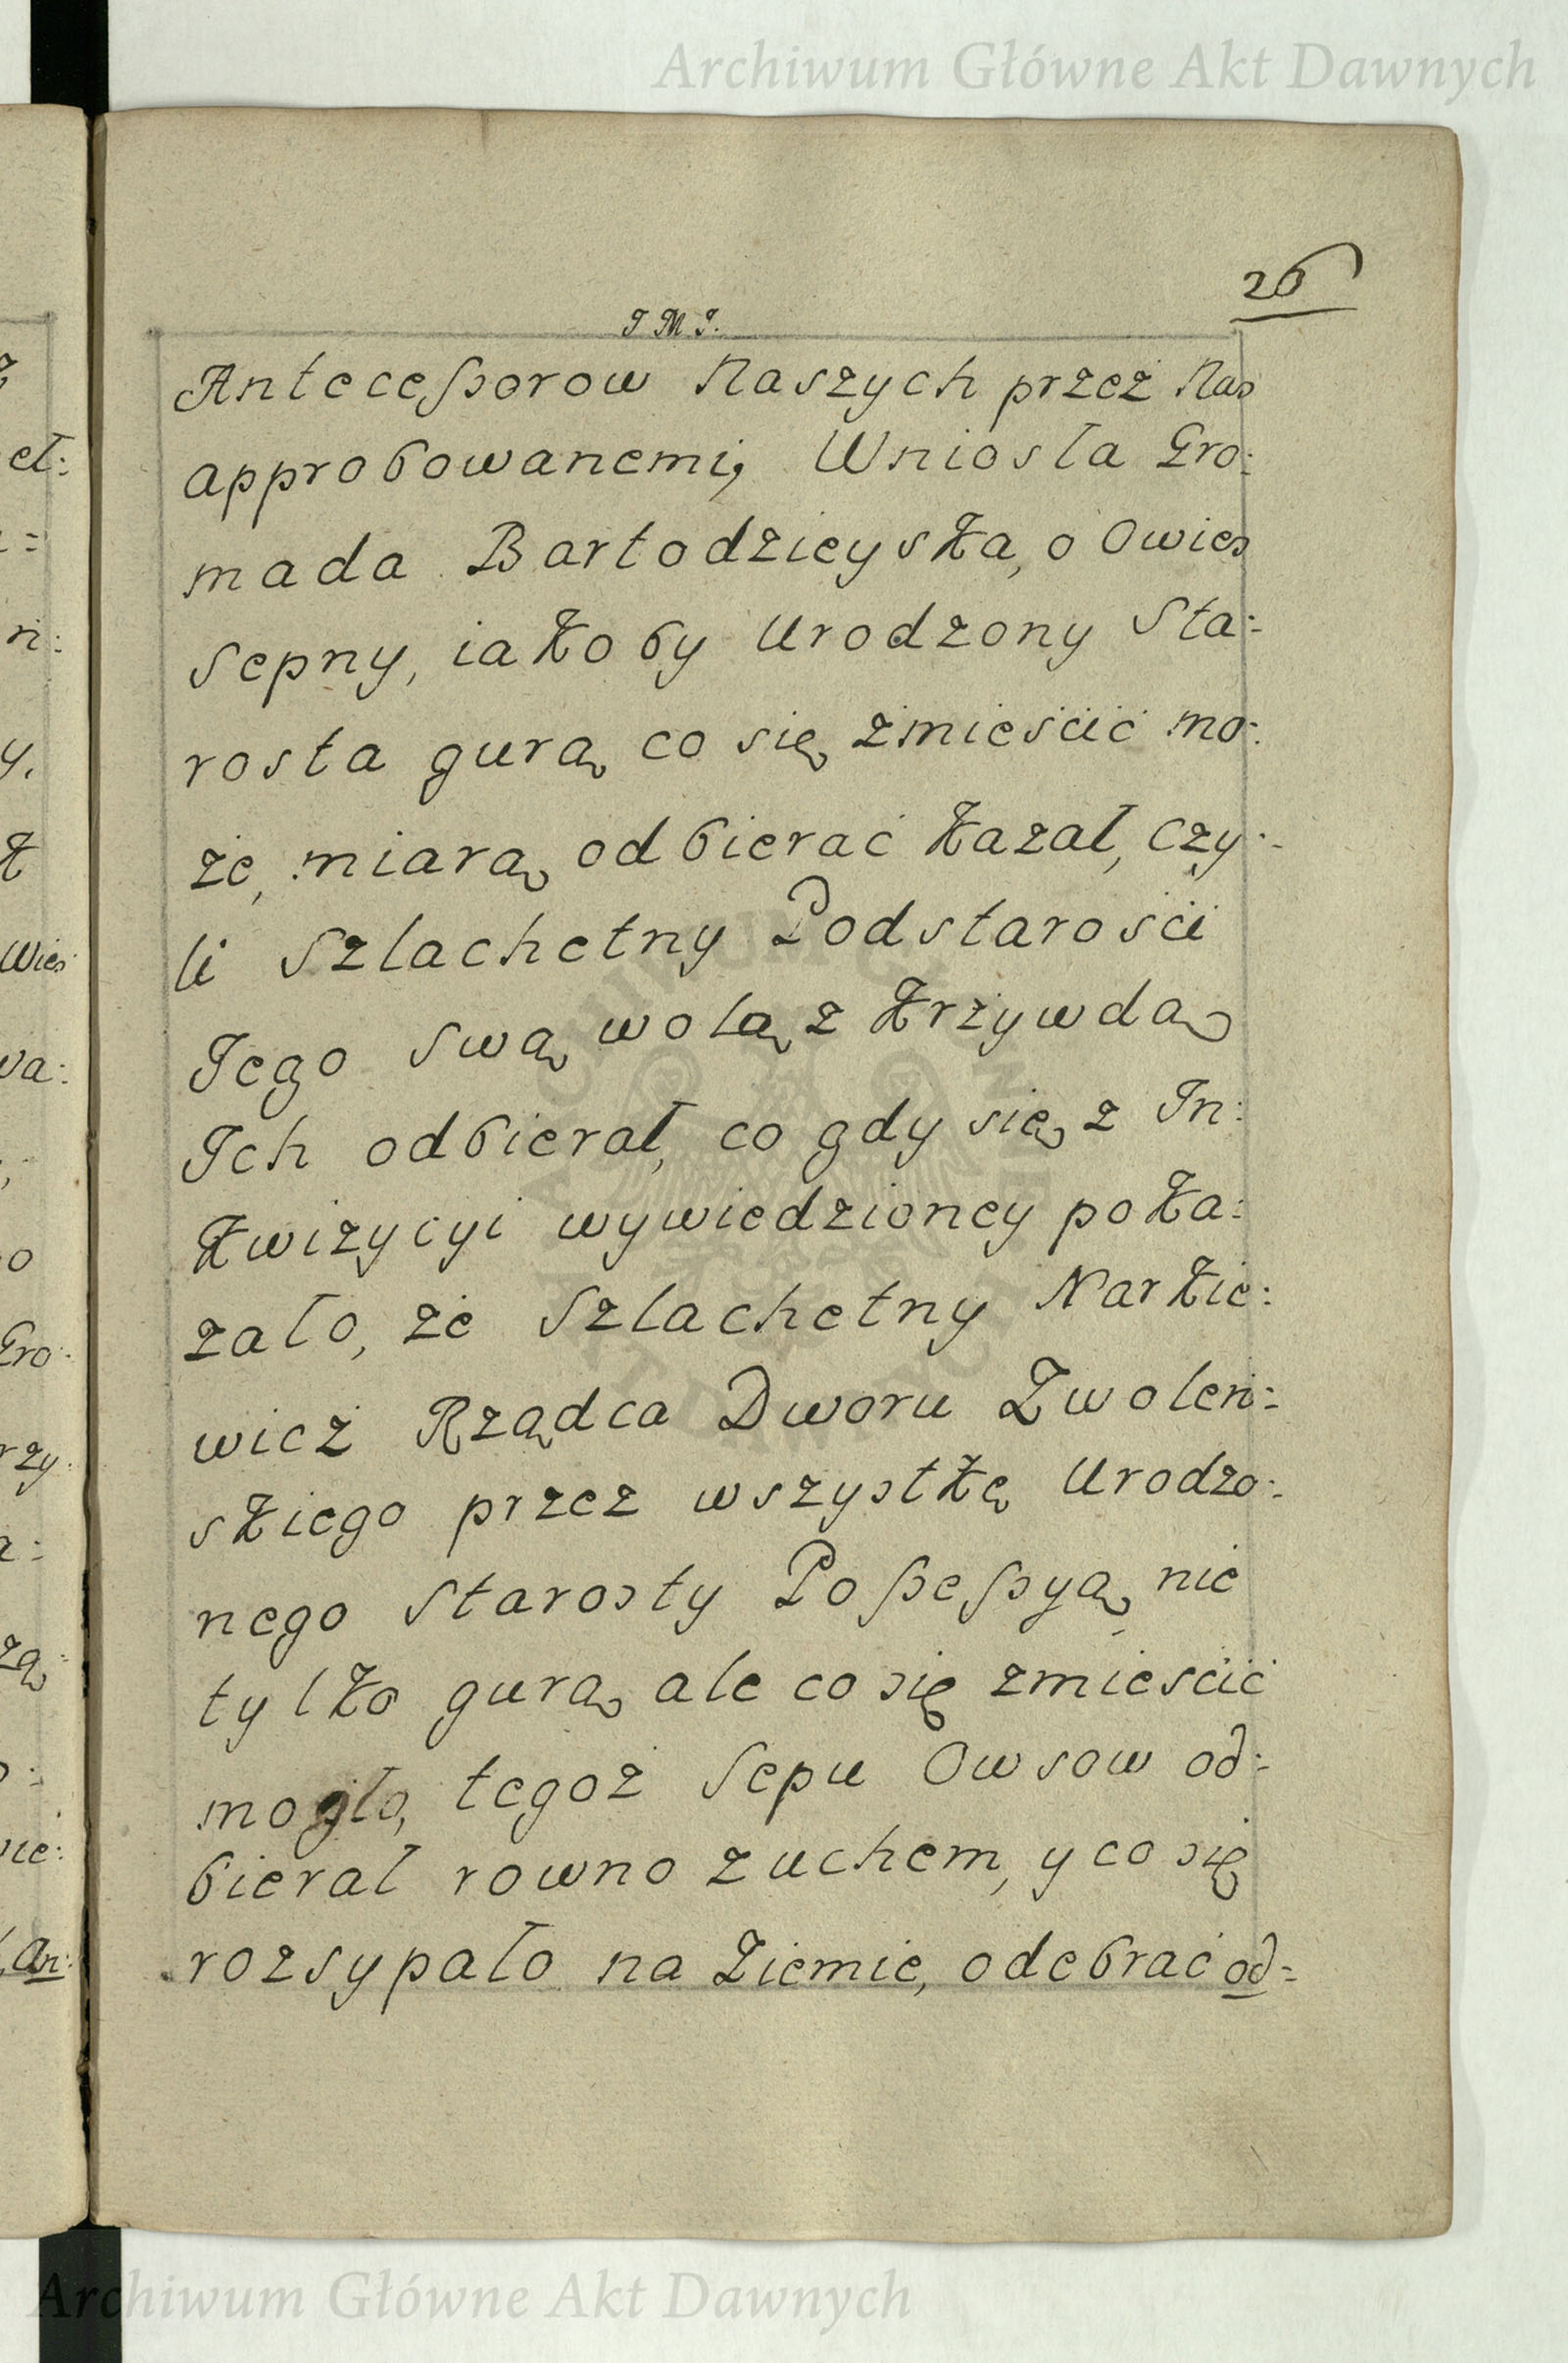 Archiwum Główne Akt Dawnych
26
J M J.
Antecessorow Naszych przez Nas
approbowanemi, Wniosła Gro:
mada Bartodzieyska, o Owies
sepny, iakoby Urodzony Sta:
rosta gurą co się zmieścić mo:
że, miarą odbierać kazał, czy:
li Szlachetny Podstarości
Jego swą wolą z krzywdą
Ich odbierał, co gdy się z In:
kwizycyi wywiedzioney poka:
zało, że Szlachetny Narkie:
wicz Rządca Dworu Zwoleń:
skiego przez wszystkę Urodzo:
nego Starosty Possessyą nie
tylko gurą ale co się zmieścić
mogło, tegoż Sepu Owsow od:
bierał rowno z uchem, y co się
rozsypało na Ziemie, odebrać od=
Archiwum Główne Akt Dawnych